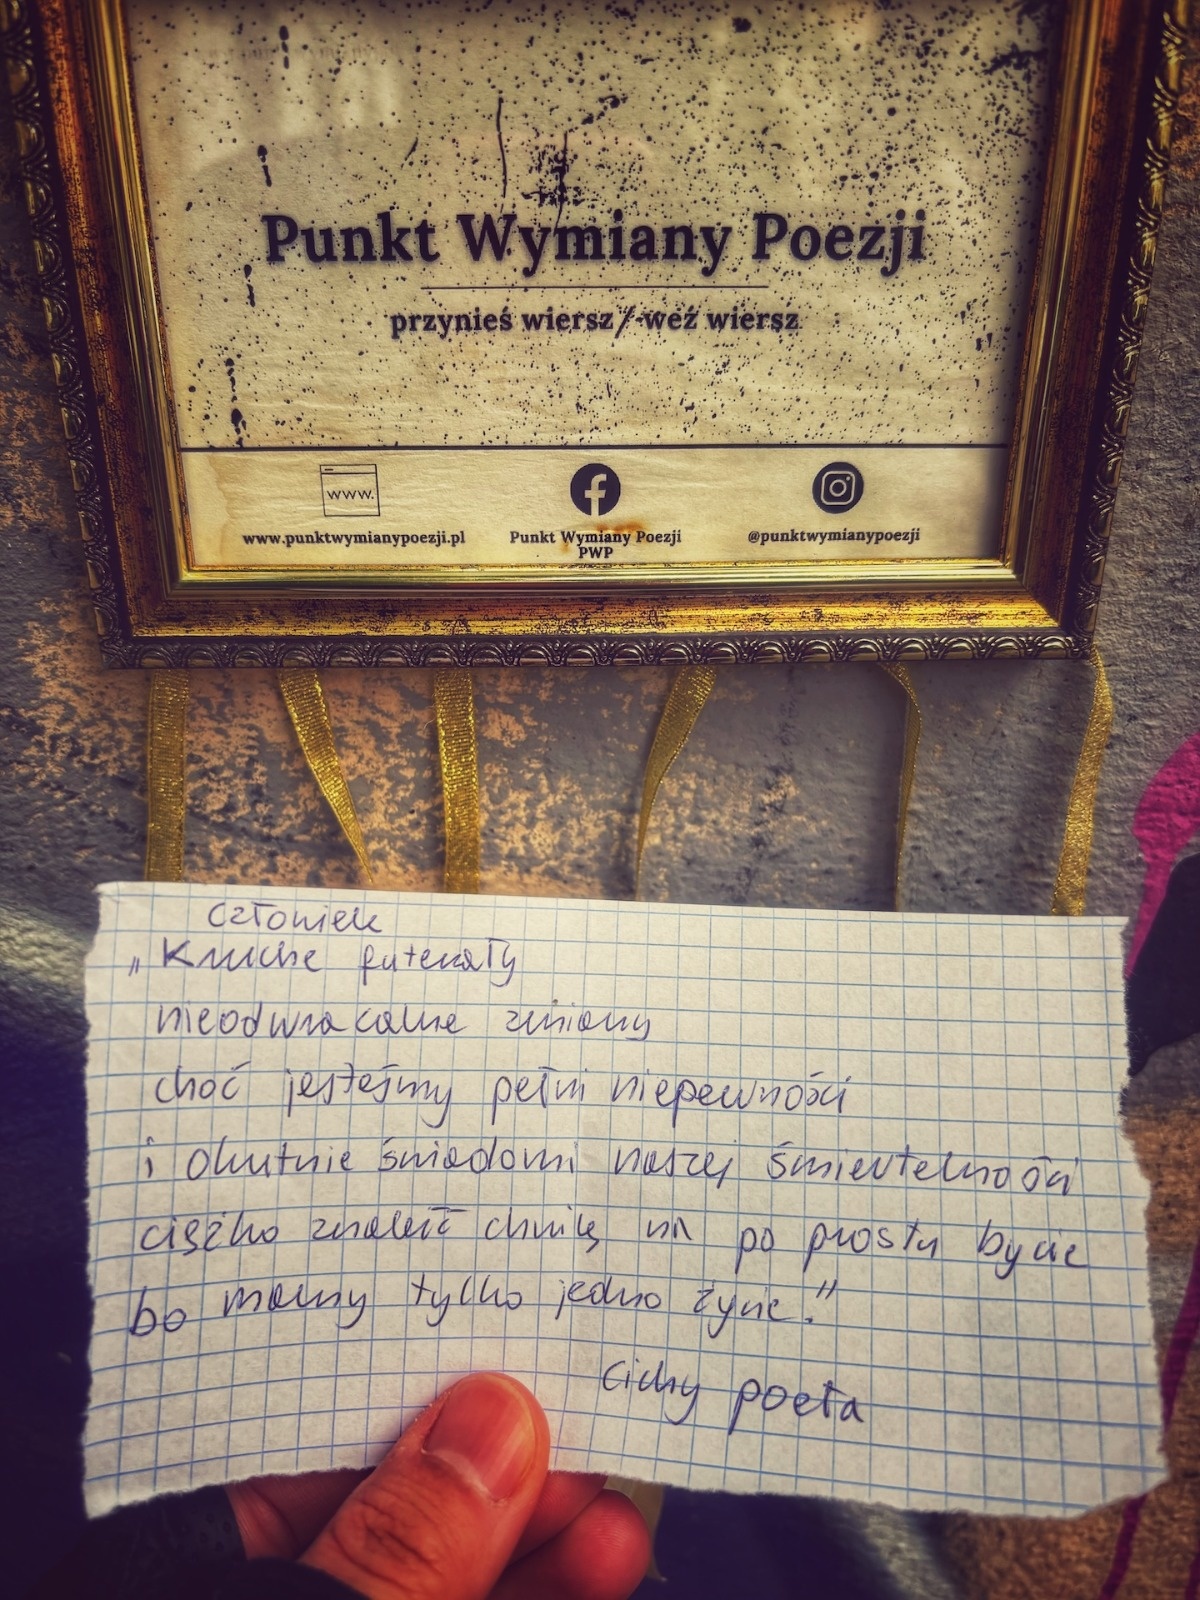 Punkt Wymiany Poezji
przynieś wiersz/weź wiersz
www.
www.punktwymianypoezji.pl
Punkt Wymiany Poezji
PWP
@punktwymianypoezji
Człowiek
„Kruche futerały
nieodwracalne zmiany
choć jesteśmy pełni niepewności
i okutnie świadomi naszej śmiertelności
ciężko znaleźć chwilę na po prostu bycie
bo mamy tylko jedno życie."
Cichy poeta